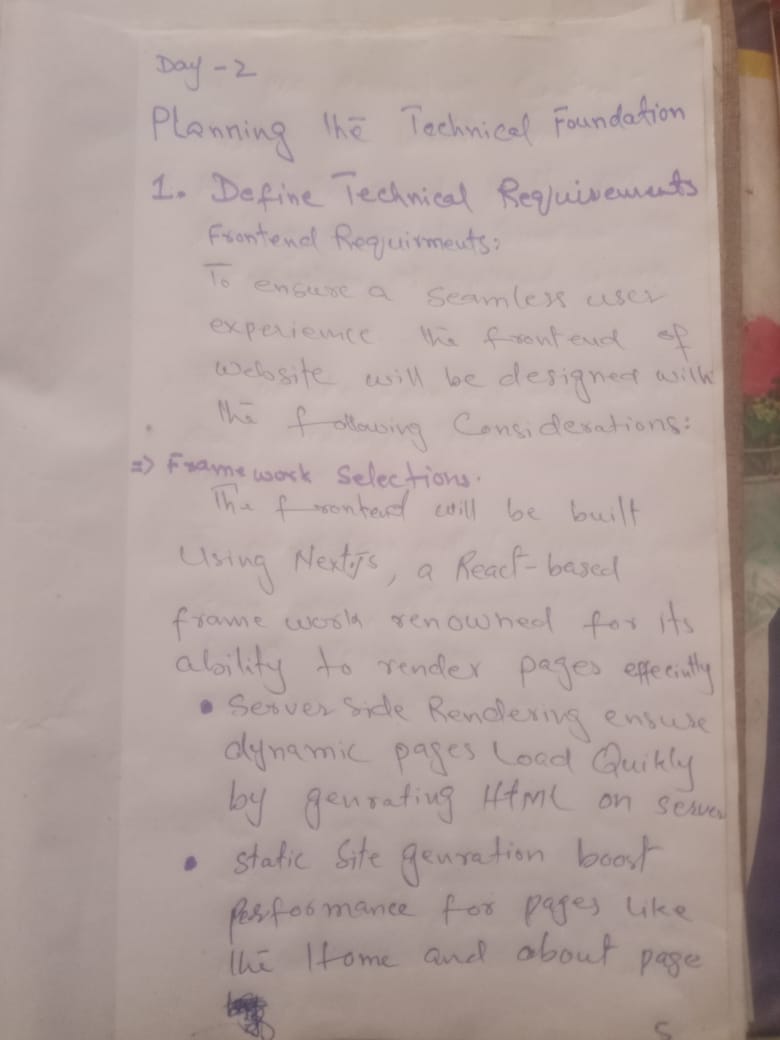 Day - 2
Planning the Technical Foundation
1. Define Technical Requirements
Frontend Requirments:
To ensure a seamless user
experience the frontend of
website will be designed with
the following Considerations:
=> Framework Selections.
The frontend will be built
Using Next.js, a React-based
frame work renowned for its
ability to render pages effecintly
• Server Side Rendering ensure
dynamic pages Load Quikly
by genrating HtML on server
• Static Site genration boost
performance for pages like
the Home and about page